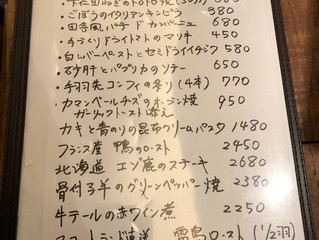 ・ごぼうのイタリアンキンピラ 380
・田舎風パテドカンパーニュ 680
・手づくりドライトマトのマリネ 450
・白レバーペーストとセミドライイチジク 580
・砂肝とパプリカのソテー 650
・手羽先コンフィの串(4本) 770
・カマンベールチーズのオーブン焼 950
ガーリックトースト添え
カキと青のりの昆布クリームパスタ 1480
フランス産 鴨のロースト 2450
北海道 エゾ鹿のステーキ 2680
骨付子羊のグリーンペッパー焼 2380
牛テールの赤ワイン煮 2250
スコットランド直送 雷鳥ロースト(1/2羽)